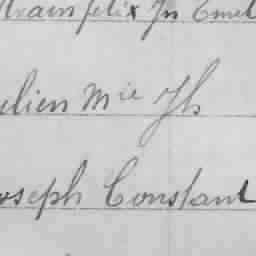 felix Jh Emel
elien Mie Jh
oseph Constant